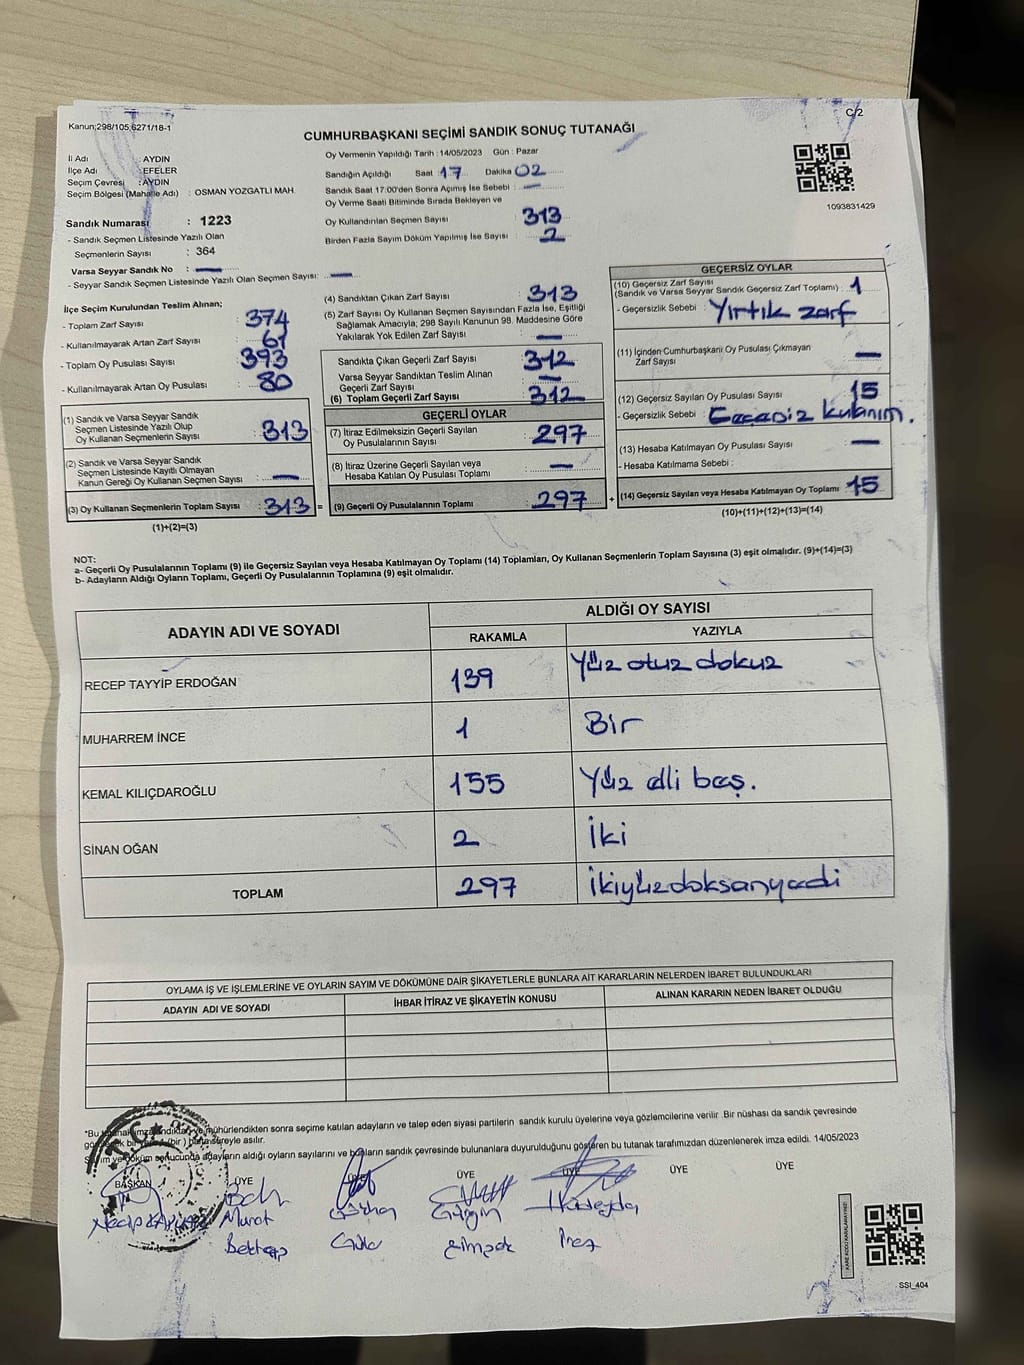 Kanun;298/105,6271/18-1
C/2
CUMHURBAŞKANI SEÇİMİ SANDIK SONUÇ TUTANAĞI
İl Adı : AYDIN
İlçe Adı : EFELER
Seçim Çevresi : AYDIN
Seçim Bölgesi (Mahalle Adı) : OSMAN YOZGATLI MAH.
Sandık Numarası : 1223
- Sandık Seçmen Listesinde Yazılı Olan
Seçmenlerin Sayısı : 364
Varsa Seyyar Sandık No : —
- Seyyar Sandık Seçmen Listesinde Yazılı Olan Seçmen Sayısı: —
Oy Vermenin Yapıldığı Tarih : 14/05/2023 Gün : Pazar
Sandığın Açıldığı Saat 17 Dakika 02
Sandık Saat 17:00'den Sonra Açılmış İse Sebebi : —
Oy Verme Saati Bitiminde Sırada Bekleyen ve
Oy Kullandırılan Seçmen Sayısı : 313
Birden Fazla Sayım Döküm Yapılmış İse Sayısı : 2
1093831429
İlçe Seçim Kurulundan Teslim Alınan;
- Toplam Zarf Sayısı : 374
- Kullanılmayarak Artan Zarf Sayısı : 61
- Toplam Oy Pusulası Sayısı : 393
- Kullanılmayarak Artan Oy Pusulası : 80
(1) Sandık ve Varsa Seyyar Sandık
Seçmen Listesinde Yazılı Olup
Oy Kullanan Seçmenlerin Sayısı : 313
(2) Sandık ve Varsa Seyyar Sandık
Seçmen Listesinde Kayıtlı Olmayan
Kanun Gereği Oy Kullanan Seçmen Sayısı : —
(3) Oy Kullanan Seçmenlerin Toplam Sayısı : 313 =
(1)+(2)=(3)
(4) Sandıktan Çıkan Zarf Sayısı : 313
(5) Zarf Sayısı Oy Kullanan Seçmen Sayısından Fazla İse, Eşitliği
Sağlamak Amacıyla; 298 Sayılı Kanunun 98. Maddesine Göre
Yakılarak Yok Edilen Zarf Sayısı : —
Sandıkta Çıkan Geçerli Zarf Sayısı : 312
Varsa Seyyar Sandıktan Teslim Alınan
Geçerli Zarf Sayısı : —
(6) Toplam Geçerli Zarf Sayısı : 312
GEÇERLİ OYLAR
(7) İtiraz Edilmeksizin Geçerli Sayılan
Oy Pusulalarının Sayısı : 297
(8) İtiraz Üzerine Geçerli Sayılan veya
Hesaba Katılan Oy Pusulası Toplamı : —
(9) Geçerli Oy Pusulalarının Toplamı : 297 +
GEÇERSİZ OYLAR
(10) Geçersiz Zarf Sayısı
(Sandık ve Varsa Seyyar Sandık Geçersiz Zarf Toplamı) : 1
- Geçersizlik Sebebi : Yırtık zarf
(11) İçinden Cumhurbaşkanı Oy Pusulası Çıkmayan
Zarf Sayısı : —
(12) Geçersiz Sayılan Oy Pusulası Sayısı : 15
- Geçersizlik Sebebi : Geçersiz kulanım.
(13) Hesaba Katılmayan Oy Pusulası Sayısı : —
- Hesaba Katılmama Sebebi :
(14) Geçersiz Sayılan veya Hesaba Katılmayan Oy Toplamı : 15
(10)+(11)+(12)+(13)=(14)
NOT:
a- Geçerli Oy Pusulalarının Toplamı (9) ile Geçersiz Sayılan veya Hesaba Katılmayan Oy Toplamı (14) Toplamları, Oy Kullanan Seçmenlerin Toplam Sayısına (3) eşit olmalıdır. (9)+(14)=(3)
b- Adayların Aldığı Oyların Toplamı, Geçerli Oy Pusulalarının Toplamına (9) eşit olmalıdır.
ADAYIN ADI VE SOYADI
ALDIĞI OY SAYISI
RAKAMLA
YAZIYLA
RECEP TAYYİP ERDOĞAN 139 Yüz otuz dokuz
MUHARREM İNCE 1 Bir
KEMAL KILIÇDAROĞLU 155 Yüz elli beş.
SİNAN OĞAN 2 İki
TOPLAM 297 İkiyüzdoksanyedi
OYLAMA İŞ VE İŞLEMLERİNE VE OYLARIN SAYIM VE DÖKÜMÜNE DAİR ŞİKAYETLERLE BUNLARA AİT KARARLARIN NELERDEN İBARET BULUNDUKLARI
ADAYIN ADI VE SOYADI
İHBAR İTİRAZ VE ŞİKAYETİN KONUSU
ALINAN KARARIN NEDEN İBARET OLDUĞU
*Bu mühürlendikten sonra seçime katılan adayların ve talep eden siyasi partilerin sandık kurulu üyelerine veya gözlemcilerine verilir .Bir nüshası da sandık çevresinde
(bir ) süreyle asılır.
Sayım ve döküm sonucunda adayların aldığı oyların sayılarını ve bunların sandık çevresinde bulunanlara duyurulduğunu gösteren bu tutanak tarafımızdan düzenlenerek imza edildi. 14/05/2023
BAŞKAN ÜYE ÜYE ÜYE ÜYE ÜYE ÜYE
T.C.
Necip
Murat
SSI_404